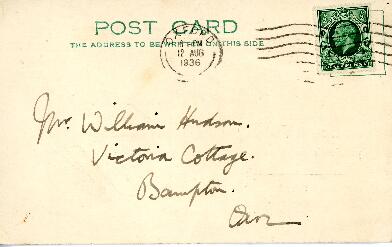 POST CARD
THE ADDRESS TO BE WRITTEN ON THIS SIDE
PM
12 AUG
1936
Mr. William Hudson.
Victoria Cottage.
Bampton.
Oxon